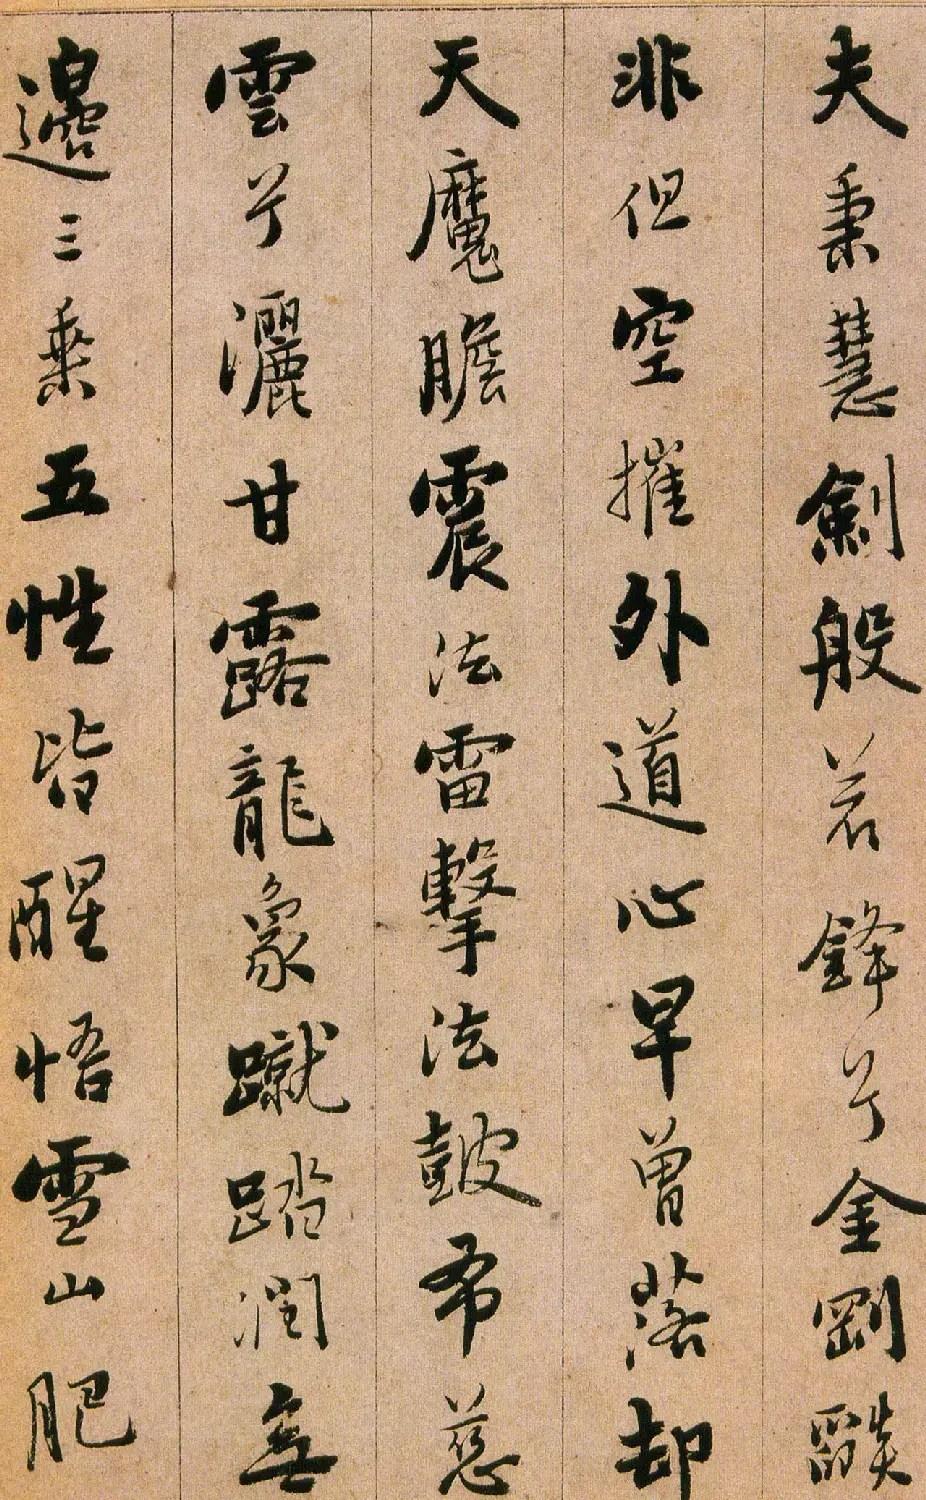 夫秉慧劍般若鋒兮金剛燄
非但空摧外道心早曾落却
天魔膽震法雷擊法鼓布慈
雲兮灑甘露龍象蹴踏潤無
邊三乗五性皆醒悟雪山肥